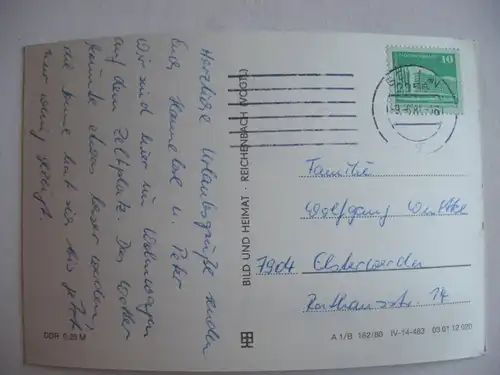 Herzliche Urlaubsgrüße senden
Euch Hannelore u. Peter
Wir sind hier im Wohnwagen
auf dem Zeltplatz. Das Wetter
könnte etwas besser werden,
die Sonne hat sich bis jetzt
nur wenig gezeigt.
BILD UND HEIMAT · REICHENBACH (VOGTL)
10
Familie
Wolfgang
7904 Elsterwerda
Rathausstr. 14
DDR 0,25 M
A 1/B 162/86 IV-14-483 05 01 12 020